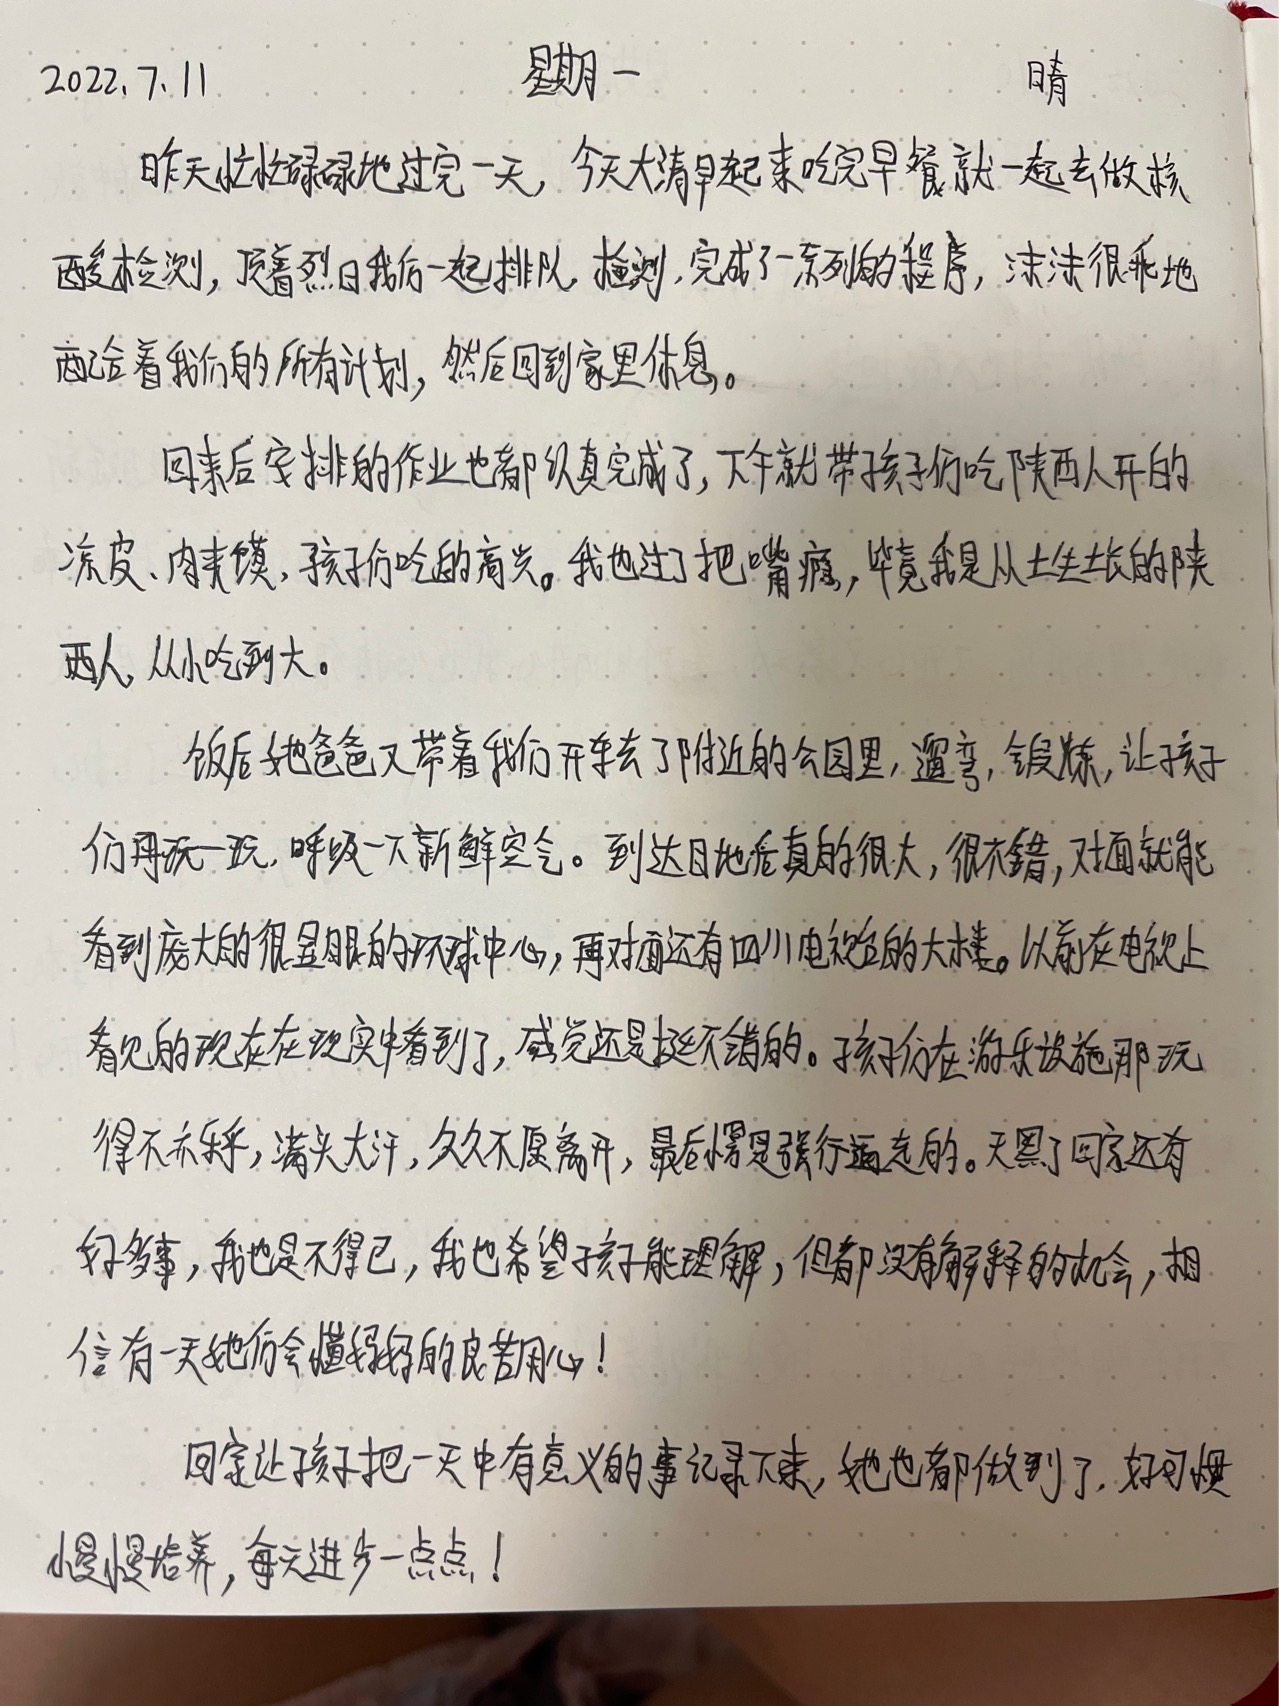 2022.7.11 星期一 晴
昨天忙忙碌碌地过完一天，今天大清早起来吃完早餐就一起去做核
酸检测，顶着烈日我们一起排队，检测，完成了一系列的程序，沫沫很乖地
配合着我们的所有计划，然后回到家里休息。
回来后安排的作业也都认真完成了，下午就带孩子们吃陕西人开的
凉皮、肉夹馍，孩子们吃的高兴。我也过了把嘴瘾，毕竟我是从土生土长的陕
西人，从小吃到大。
饭后她爸爸又带着我们开车去了附近的公园里，遛弯，锻炼，让孩子
们再玩一玩，呼吸一下新鲜空气。到达目地后真的很大，很不错，对面就能
看到庞大的很显眼的环球中心，再对面还有四川电视台的大楼。以前在电视上
看见的现在在现实中看到了，感觉还是挺不错的。孩子们在游乐设施那玩
得不亦乐乎，满头大汗，久久不愿离开，最后愣是强行逼走的。天黑了回家还有
好多事，我也是不得已，我也希望孩子能理解，但都没有解释的机会，相
信有一天她们会懂妈妈的良苦用心！
回家让孩子把一天中有意义的事记录下来，她也都做到了，好习惯
慢慢培养，每天进步一点点！